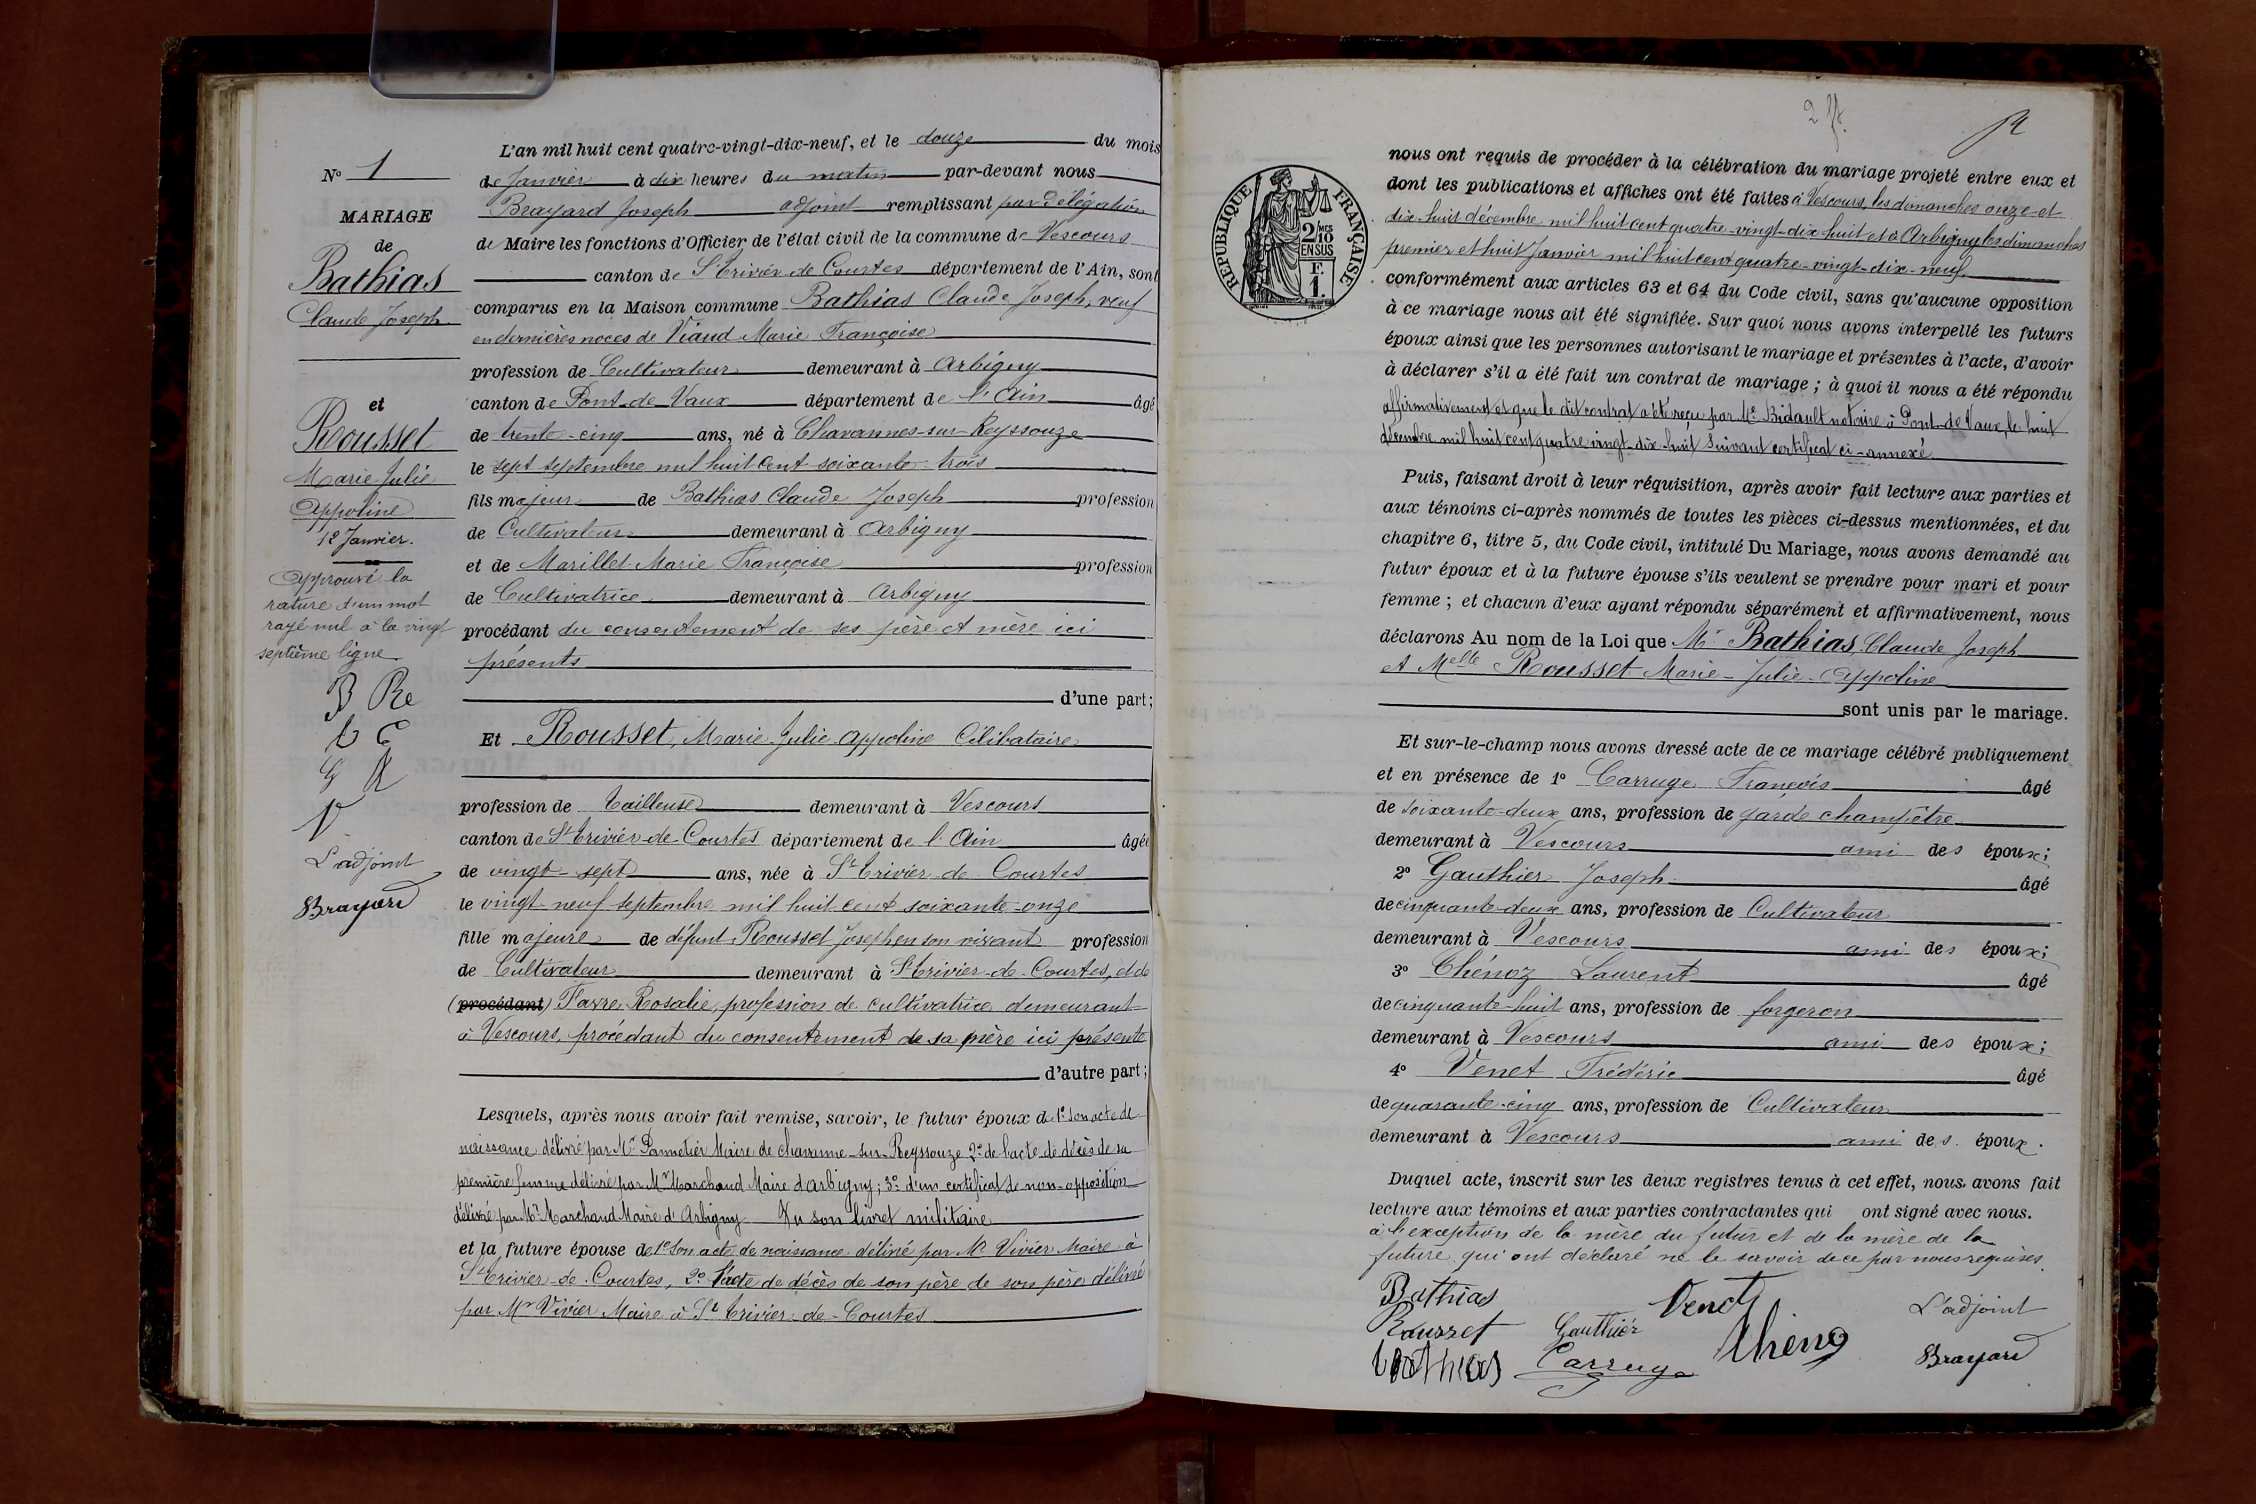 N° 1
MARIAGE
de
Bathias
Claude Joseph
et
Rousset
Marie Julie
Appoline
12 Janvier.
Approuvé la
rature d'un mot
rayé nul à la vingt
septième ligne
B Re
C
V
L'adjoint
Brayard
L'an mil huit cent quatre-vingt-dix-neuf, et le douze du mois
de Janvier à dix heures du matin par-devant nous
Brayard Joseph adjoint remplissant par délégation
de Maire les fonctions d'Officier de l'état civil de la commune de Vescours
canton de St Trivier de Courtes département de l'Ain, sont
comparus en la Maison commune Bathias Claude Joseph, veuf
en dernières noces de Viand Marie Françoise
profession de Cultivateur demeurant à Arbigny
canton de Pont-de-Vaux département de l'Ain âgé
de trente-cinq ans, né à Chavannes-sur-Reyssouze
le sept septembre mil huit cent soixante-trois
fils majeur de Bathias Claude Joseph profession
de Cultivateur demeurant à Arbigny
et de Marillet Marie Françoise profession
de Cultivatrice demeurant à Arbigny
procédant du consentement de ses père et mère ici
présents
d'une part;
Et Rousset, Marie Julie Appoline Célibataire
profession de Tailleuse demeurant à Vescours
canton de St Trivier-de-Courtes département de l'Ain âgée
de vingt-sept ans, née à St Trivier-de-Courtes
le vingt-neuf septembre mil huit cent soixante-onze
fille majeure de défunt Rousset Joseph en son vivant profession
de Cultivateur demeurant à St Trivier-de-Courtes, et de
(procédant) Favre Rosalie, profession de cultivatrice demeurant
à Vescours, procédant du consentement de sa mère ici présente
d'autre part;
Lesquels, après nous avoir fait remise, savoir, le futur époux de 1° son acte de
naissance délivré par Mr Pannetier Maire de Chavanne-sur-Reyssouze 2° de l'acte de décès de sa
première femme délivré par Mr Marchand Maire d'Arbigny; 3° d'un certificat de non-opposition
délivré par Mr Marchand Maire d'Arbigny Vu son livret militaire
et la future épouse de 1° son acte de naissance délivré par Mr Vivier Maire à
St Trivier-de-Courtes, 2° l'acte de décès de son père de son père délivré
par Mr Vivier Maire à St Trivier-de-Courtes
RÉPUBLIQUE FRANÇAISE
2/10 MES
EN SUS
F.
1.
nous ont requis de procéder à la célébration du mariage projeté entre eux et
dont les publications et affiches ont été faites à Vescours, les dimanches onze et
dix-huit décembre mil huit cent quatre-vingt-dix huit et à Arbigny les dimanches
premier et huit Janvier mil huit cent quatre-vingt-dix-neuf
conformément aux articles 63 et 64 du Code civil, sans qu'aucune opposition
à ce mariage nous ait été signifiée. Sur quoi nous avons interpellé les futurs
époux ainsi que les personnes autorisant le mariage et présentes à l'acte, d'avoir
à déclarer s'il a été fait un contrat de mariage; à quoi il nous a été répondu
affirmativement et que le dit contrat a été reçu par Me Bidault notaire à Pont-de-Vaux, le huit
décembre mil huit cent quatre vingt-dix-huit suivant certificat ci-annexé
Puis, faisant droit à leur réquisition, après avoir fait lecture aux parties et
aux témoins ci-après nommés de toutes les pièces ci-dessus mentionnées, et du
chapitre 6, titre 5, du Code civil, intitulé Du Mariage, nous avons demandé au
futur époux et à la future épouse s'ils veulent se prendre pour mari et pour
femme; et chacun d'eux ayant répondu séparément et affirmativement, nous
déclarons Au nom de la Loi que Mr Bathias, Claude Joseph
et Melle Rousset Marie-Julie-Appoline
sont unis par le mariage.
Et sur-le-champ nous avons dressé acte de ce mariage célébré publiquement
et en présence de 1° Carruge François âgé
de soixante-deux ans, profession de garde champêtre
demeurant à Vescours ami des époux;
2° Gauthier Joseph âgé
de cinquante-deux ans, profession de Cultivateur
demeurant à Vescours ami des époux;
3° Thénoz Laurent âgé
de cinquante-huit ans, profession de forgeron
demeurant à Vescours ami des époux;
4° Venet Frédéric âgé
de quarante-cinq ans, profession de Cultivateur
demeurant à Vescours ami des époux.
Duquel acte, inscrit sur les deux registres tenus à cet effet, nous avons fait
lecture aux témoins et aux parties contractantes qui ont signé avec nous.
à l'exception de la mère du futur et de la mère de la
future qui ont déclaré ne le savoir de ce par nous requises.
Bathias
Venet
L'adjoint
Rousset
Gauthier
Bathias
Carruge
Théno
Brayard